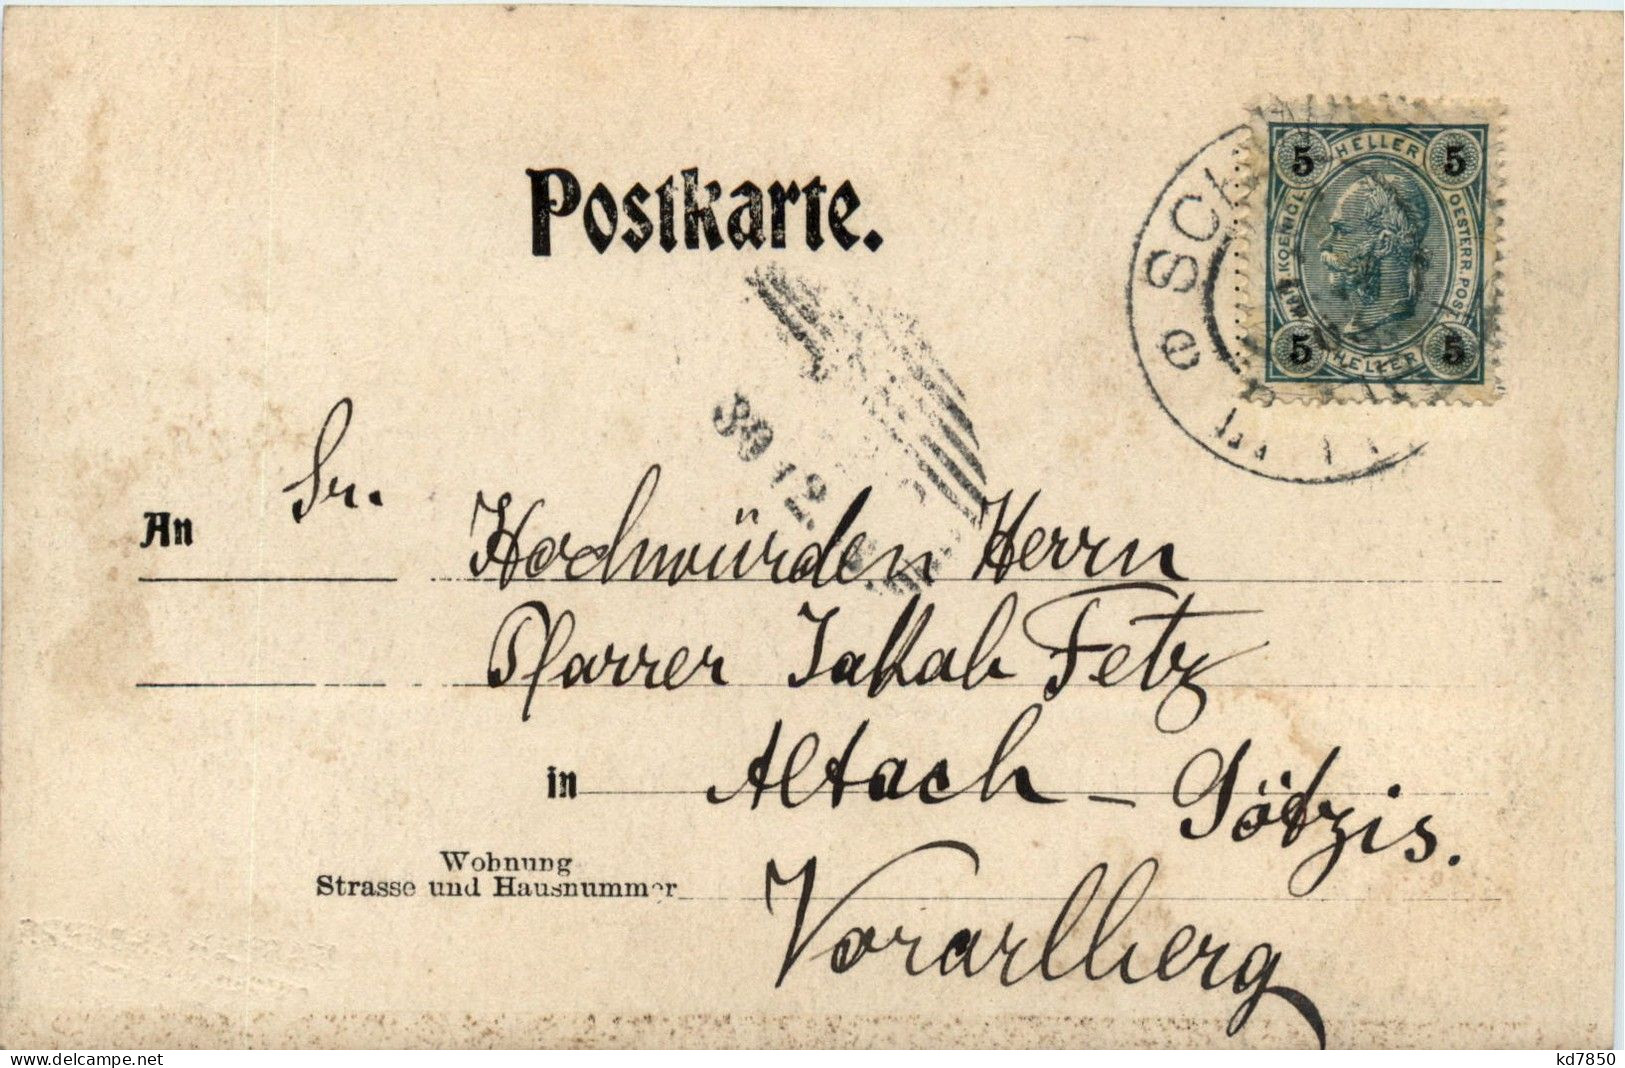 Postkarte.
HELLER
5 5
KAIS. KOENIGL. OESTERR. POST
5 5
HELLER
e SCH
30 12
Sr.
An Hochwürden Herrn
Pfarrer Jakob Fetz
in Altach - Götzis.
Wohnung
Strasse und Hausnummer
Vorarlberg
www.delcampe.net
kd7850